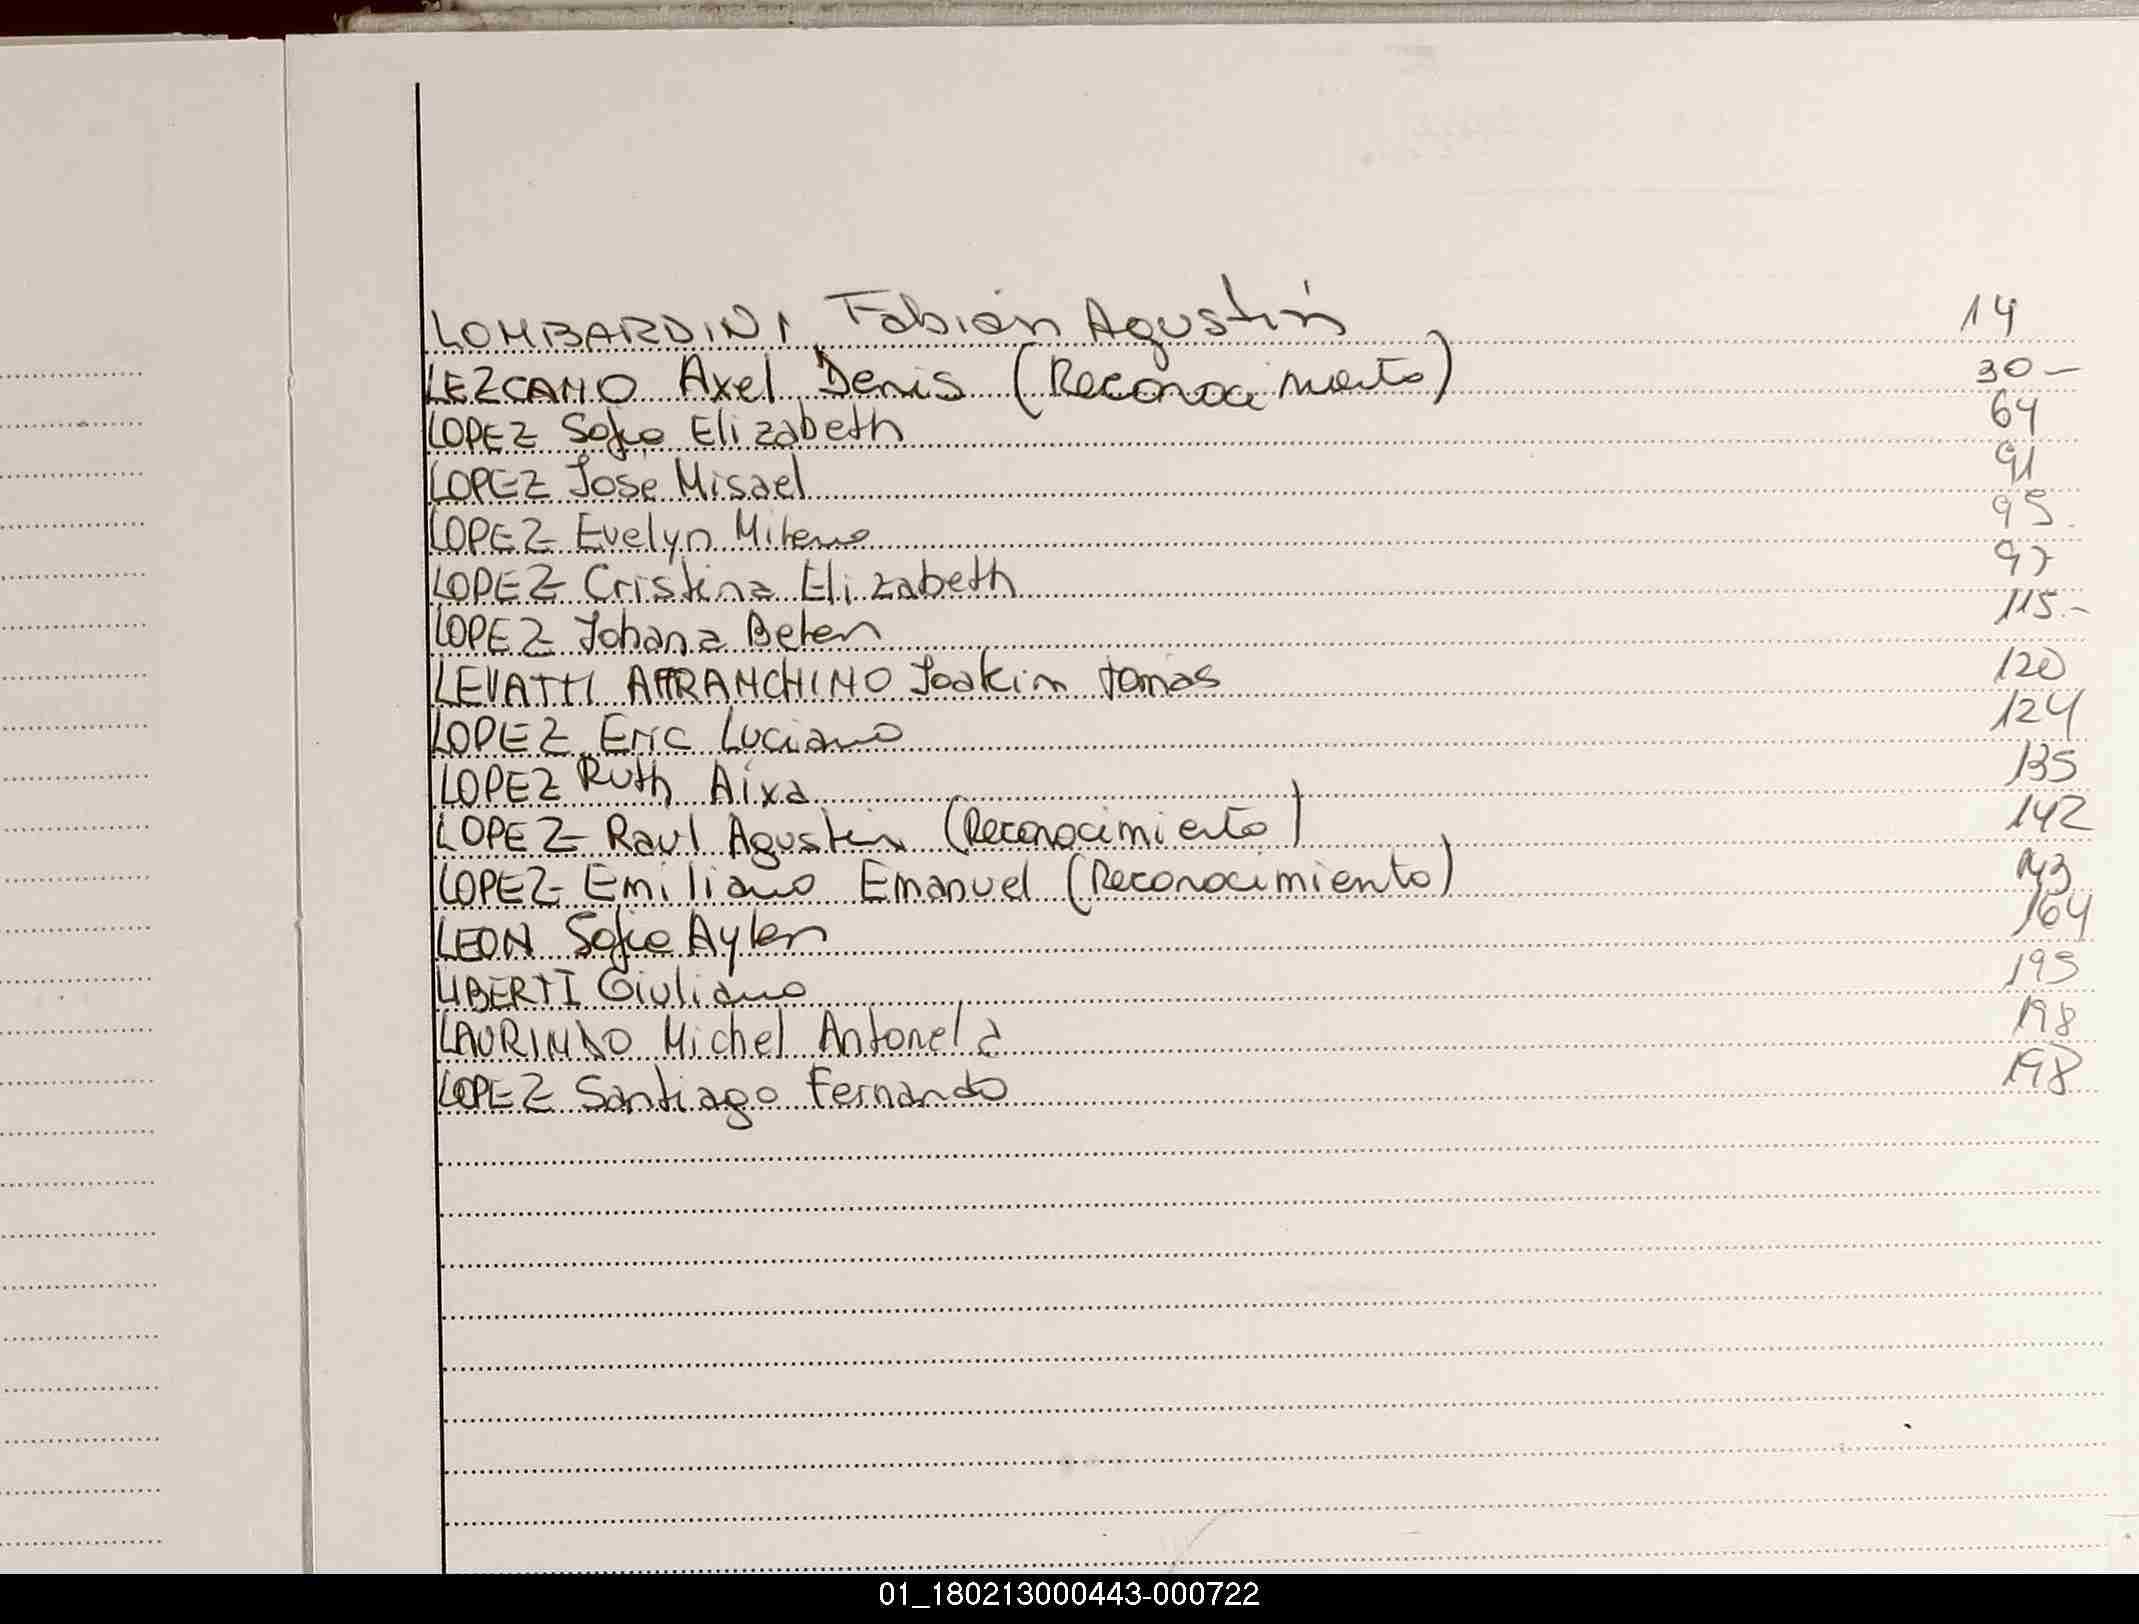 LOMBARDINI Fabián Agustín 14
LEZCANO Axel Denis (Reconocimiento) 30-
LOPEZ Sofia Elizabeth 64
LOPEZ Jose Misael 91
LOPEZ Evelyn Milena 95
LOPEZ Cristina Elizabeth 97
LOPEZ Johana Belen 115.-
LEVATTI AFFRANCHINO Joakin tomas 120
LOPEZ Eric Luciano 124
LOPEZ Ruth Aixa 135
LOPEZ Raul Agustin (Reconocimiento) 142
LOPEZ Emiliano Emanuel (Reconocimiento) 143
LEON Sofia Aylen 164
LIBERTI Giuliano 195
LAURINDO Michel Antonela 198
LOPEZ Santiago Fernando 198
01_180213000443-000722